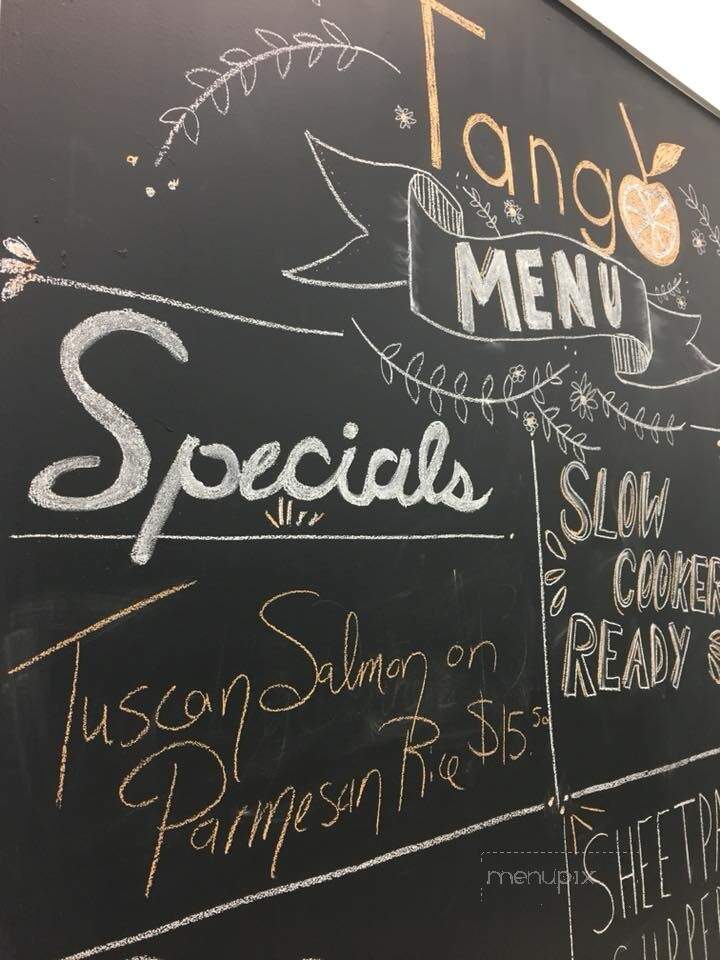 Tango
MENU
Specials
Tuscan Salmon on
Parmesan Rice $15.50
SLOW
COOKER
READY
menupix